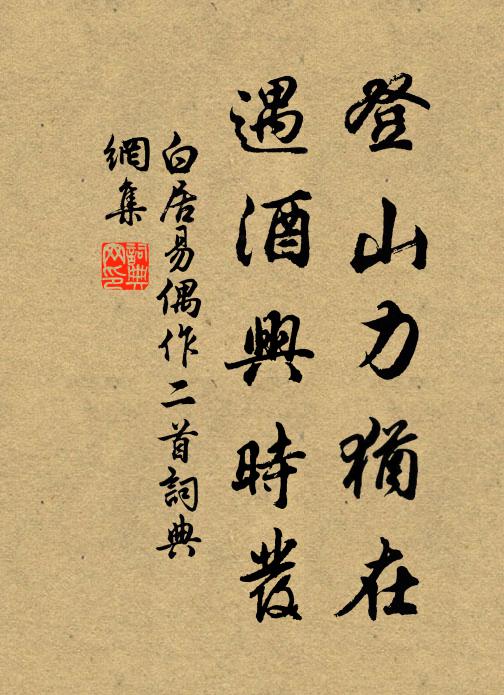 登山力猶在
遇酒興時發
白居易偶作二首詞典
網集
詞典
网印